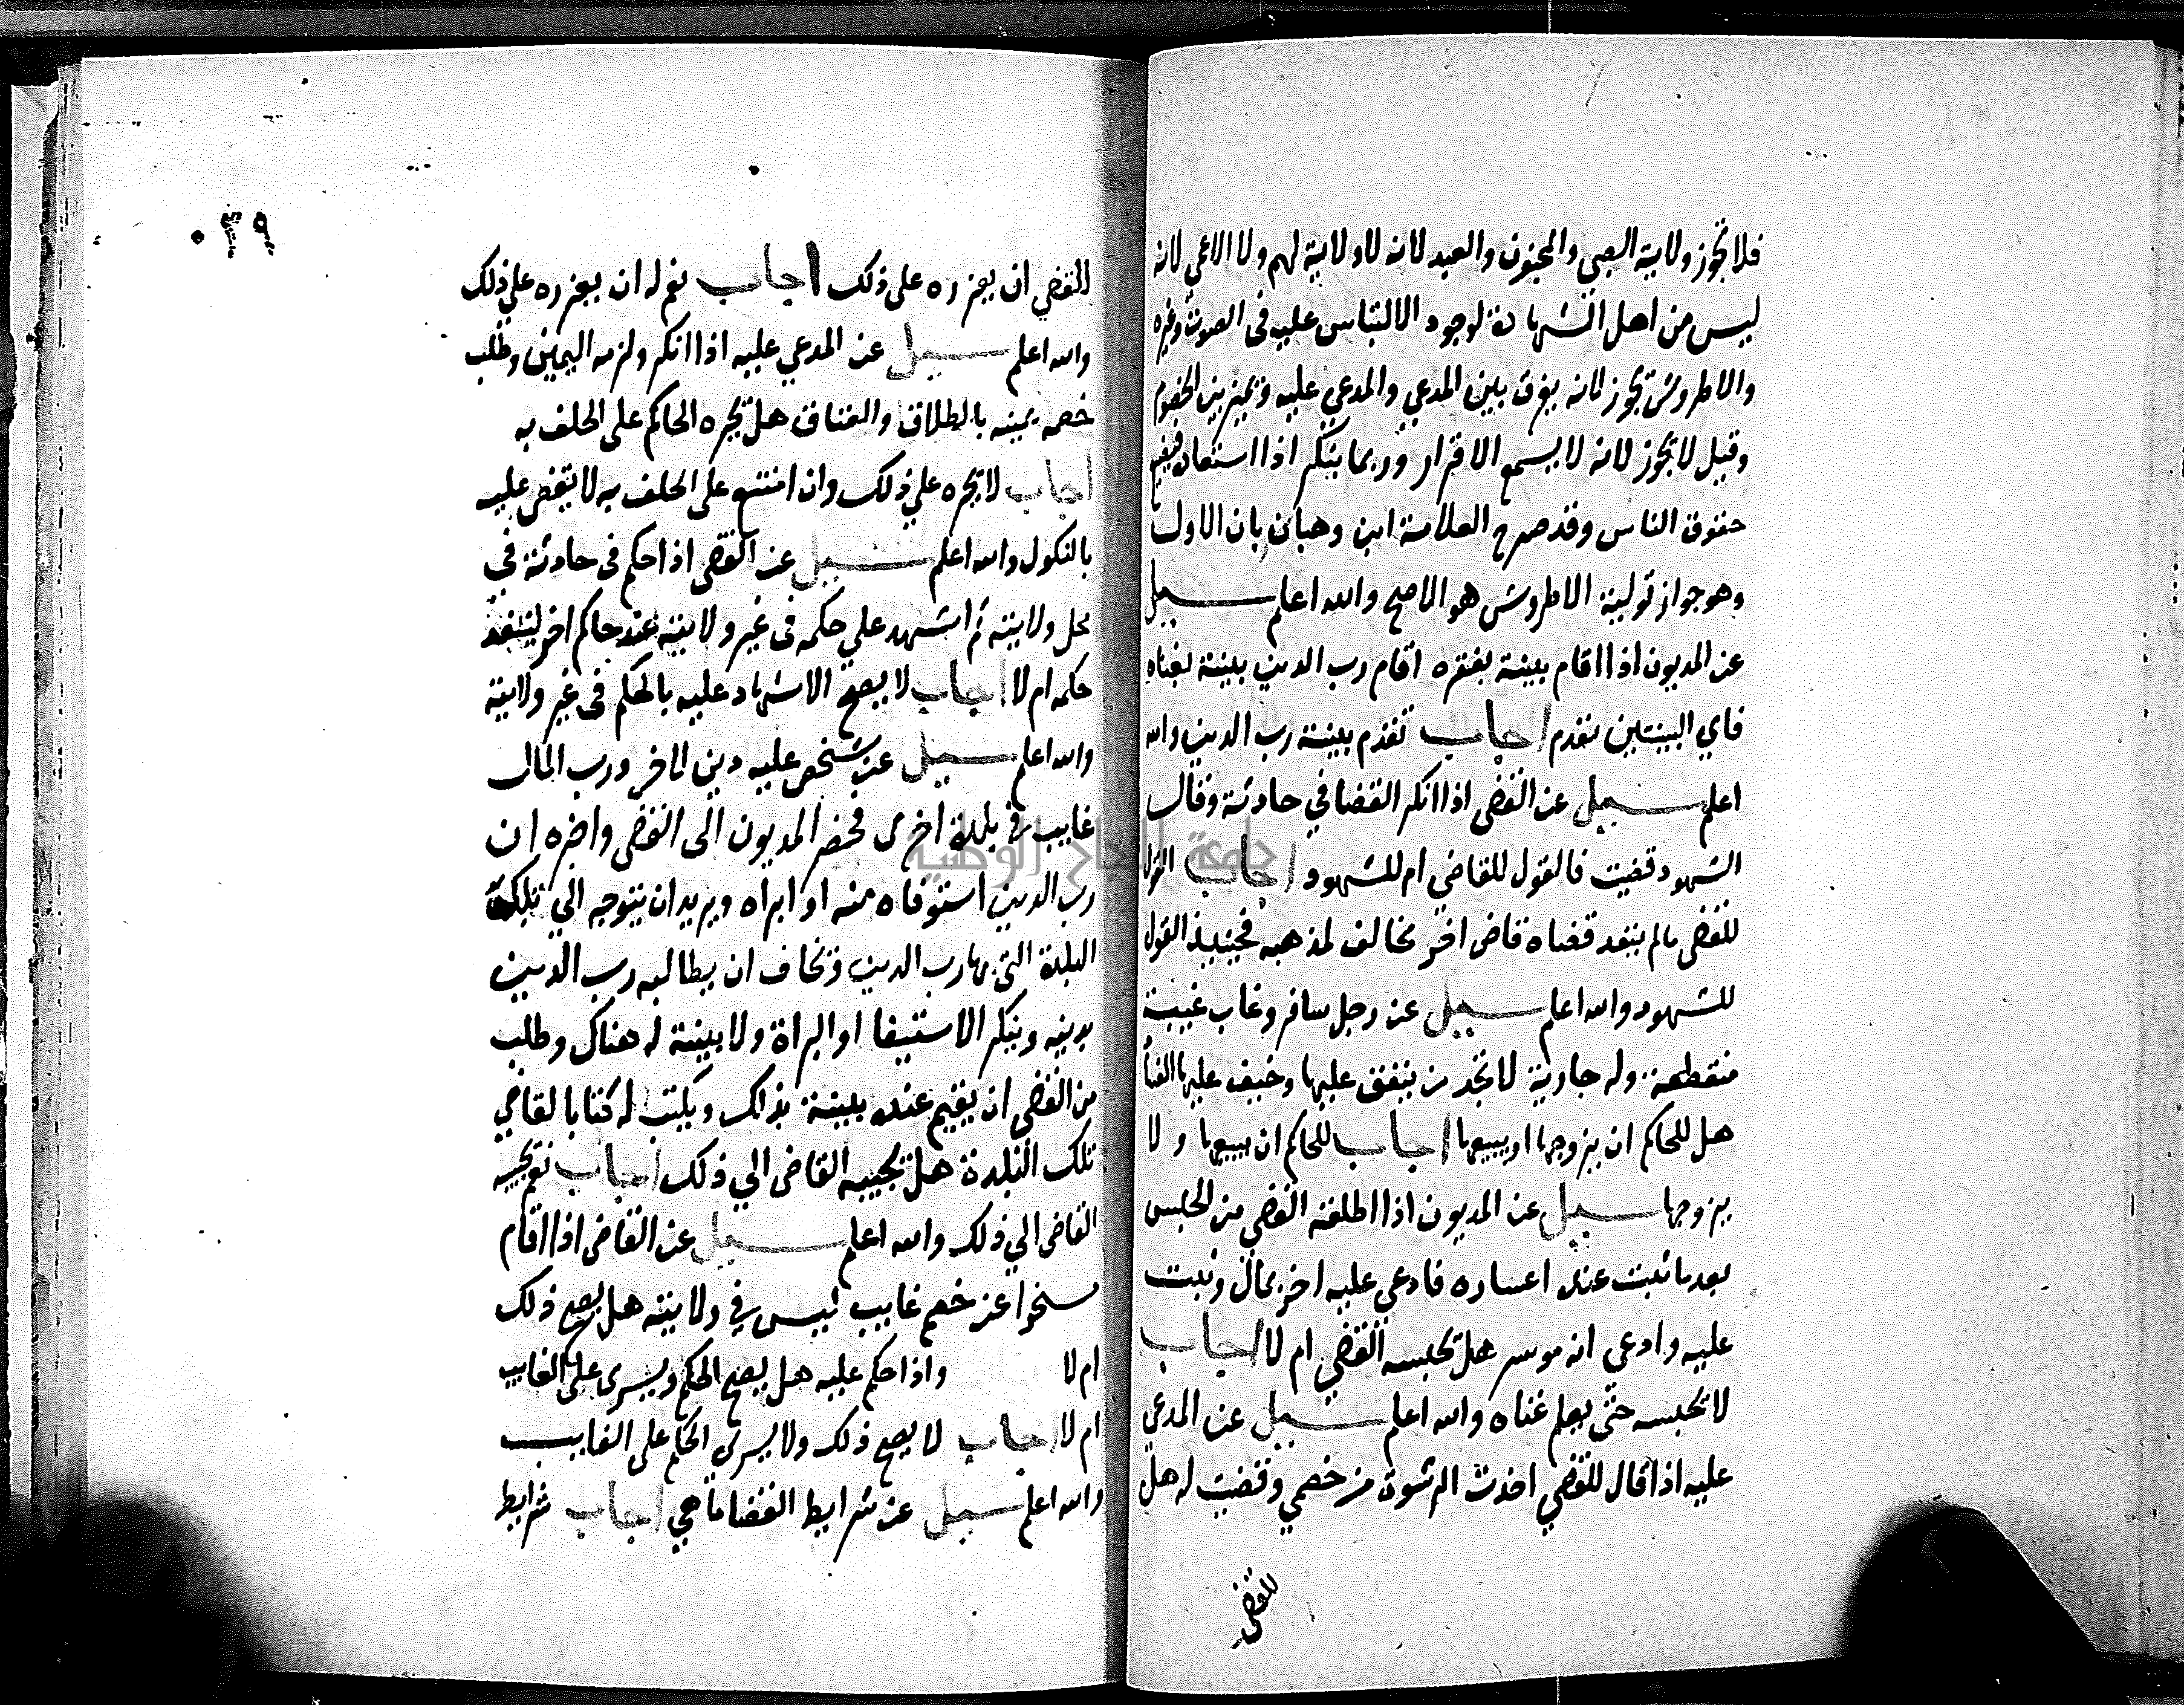 فلا تجوز ولاية الصبي والمجنون والعبد لانه لا ولاية لهم ولا الاعمى لانه
ليس من اهل الشهادة لوجود الالتباس عليه في الصوت وغيره
والاطروش تجوز لانه يفرق بين المدعي والمدعي عليه وتميز بين الخصوم
وقيل لا تجوز لانه لا يسمع الاقرار وربما ينكر اذا استعاده فيضيع
حقوق الناس وقد صرح العلامة ابن وهبان بان الاول
وهو جواز تولية الاطروش هو الاصح والله اعلم سيل
عن المديون اذا اقام بينة بفقره اقام رب الدين بينة بغناه
فاي البينتين تقدم اجاب تقدم بينة رب الدين والله
اعلم سيل عن القضي اذا انكر القضا في حادثة وقال
الشهود قضيت فالقول للقاضي ام للشهود اجاب القول
للقضي مالم ينفد قضاه قاض اخر مخالف لمذهبه فحينيذ القول
للشهود والله اعلم سيل عن رجل سافر وغاب غيبة
منقطعة وله جارية لا تجد من ينفق عليها وخيف عليها الفنا
هل للحاكم ان يزوجها او يبيعها اجاب للحاكم ان يبيعها ولا
يزوجها سيل عن المديون اذا اطلقه القضي من الحبس
بعد ما ثبت عنده اعساره فادعي عليه اخر بمال وثبت
عليه وادعى انه موسر هل تحبسه القضي ام لا اجاب
لا تحبسه حتى يعلم غناه والله اعلم سيل عن المدعي
عليه اذا قال للقضي اخذت الرشوة من خصمي وقضيت له هل
للقضي
٣٩
للقضي ان يعزره على ذلك اجاب نعم له ان يعزره على ذلك
والله اعلم سيل عن المدعي عليه اذا انكر ولزمه اليمين وطلب
خصمه يمينه بالطلاق والعتاق هل يجبره الحاكم على الحلف به
اجاب لا يجبره علي ذلك وان امتنع على الحلف به لا يقضى عليه
بالنكول والله اعلم سيل عن القضي اذا حكم في حادثة في
محل ولايته ثم اشهد علي حكمه في غير ولايته عند حاكم اخر لينفد
حكمه ام لا اجاب لا يصح الاشهاد عليه بالحكم في غير ولايته
والله اعلم سيل عن شخص عليه دين لاخر ورب المال
غايب في بلدة اخرى فحضر المديون الى القضي واخبره ان
رب الدين استوفاه منه او ابراه ويريد ان يتوجه الي تلك
البلدة التي بها رب الدين وتخاف ان يطالبه رب الدين
بدينه وينكر الاستيفا او البراة ولا بينة له هناك وطلب
من القضي ان يقيم عنده بينة بذلك ويكتب له كتابا لقاضي
تلك البلدة هل تجيبه القاضي الي ذلك اجاب نعم تجيبه
القاضي الي ذلك والله اعلم سيل عن القاضي اذا اقام
مسخرا عن خصم غايب ليس في ولايته هل يصح ذلك
ام لا واذا حكم عليه هل يصح الحكم ويسرى على الغايب
ام لا اجاب لا يصح ذلك ولا يسرى الحكم على الغايب
والله اعلم سيل عن شرايط القضا ما هي اجاب شرايط
جامعة النجاح الوطنية